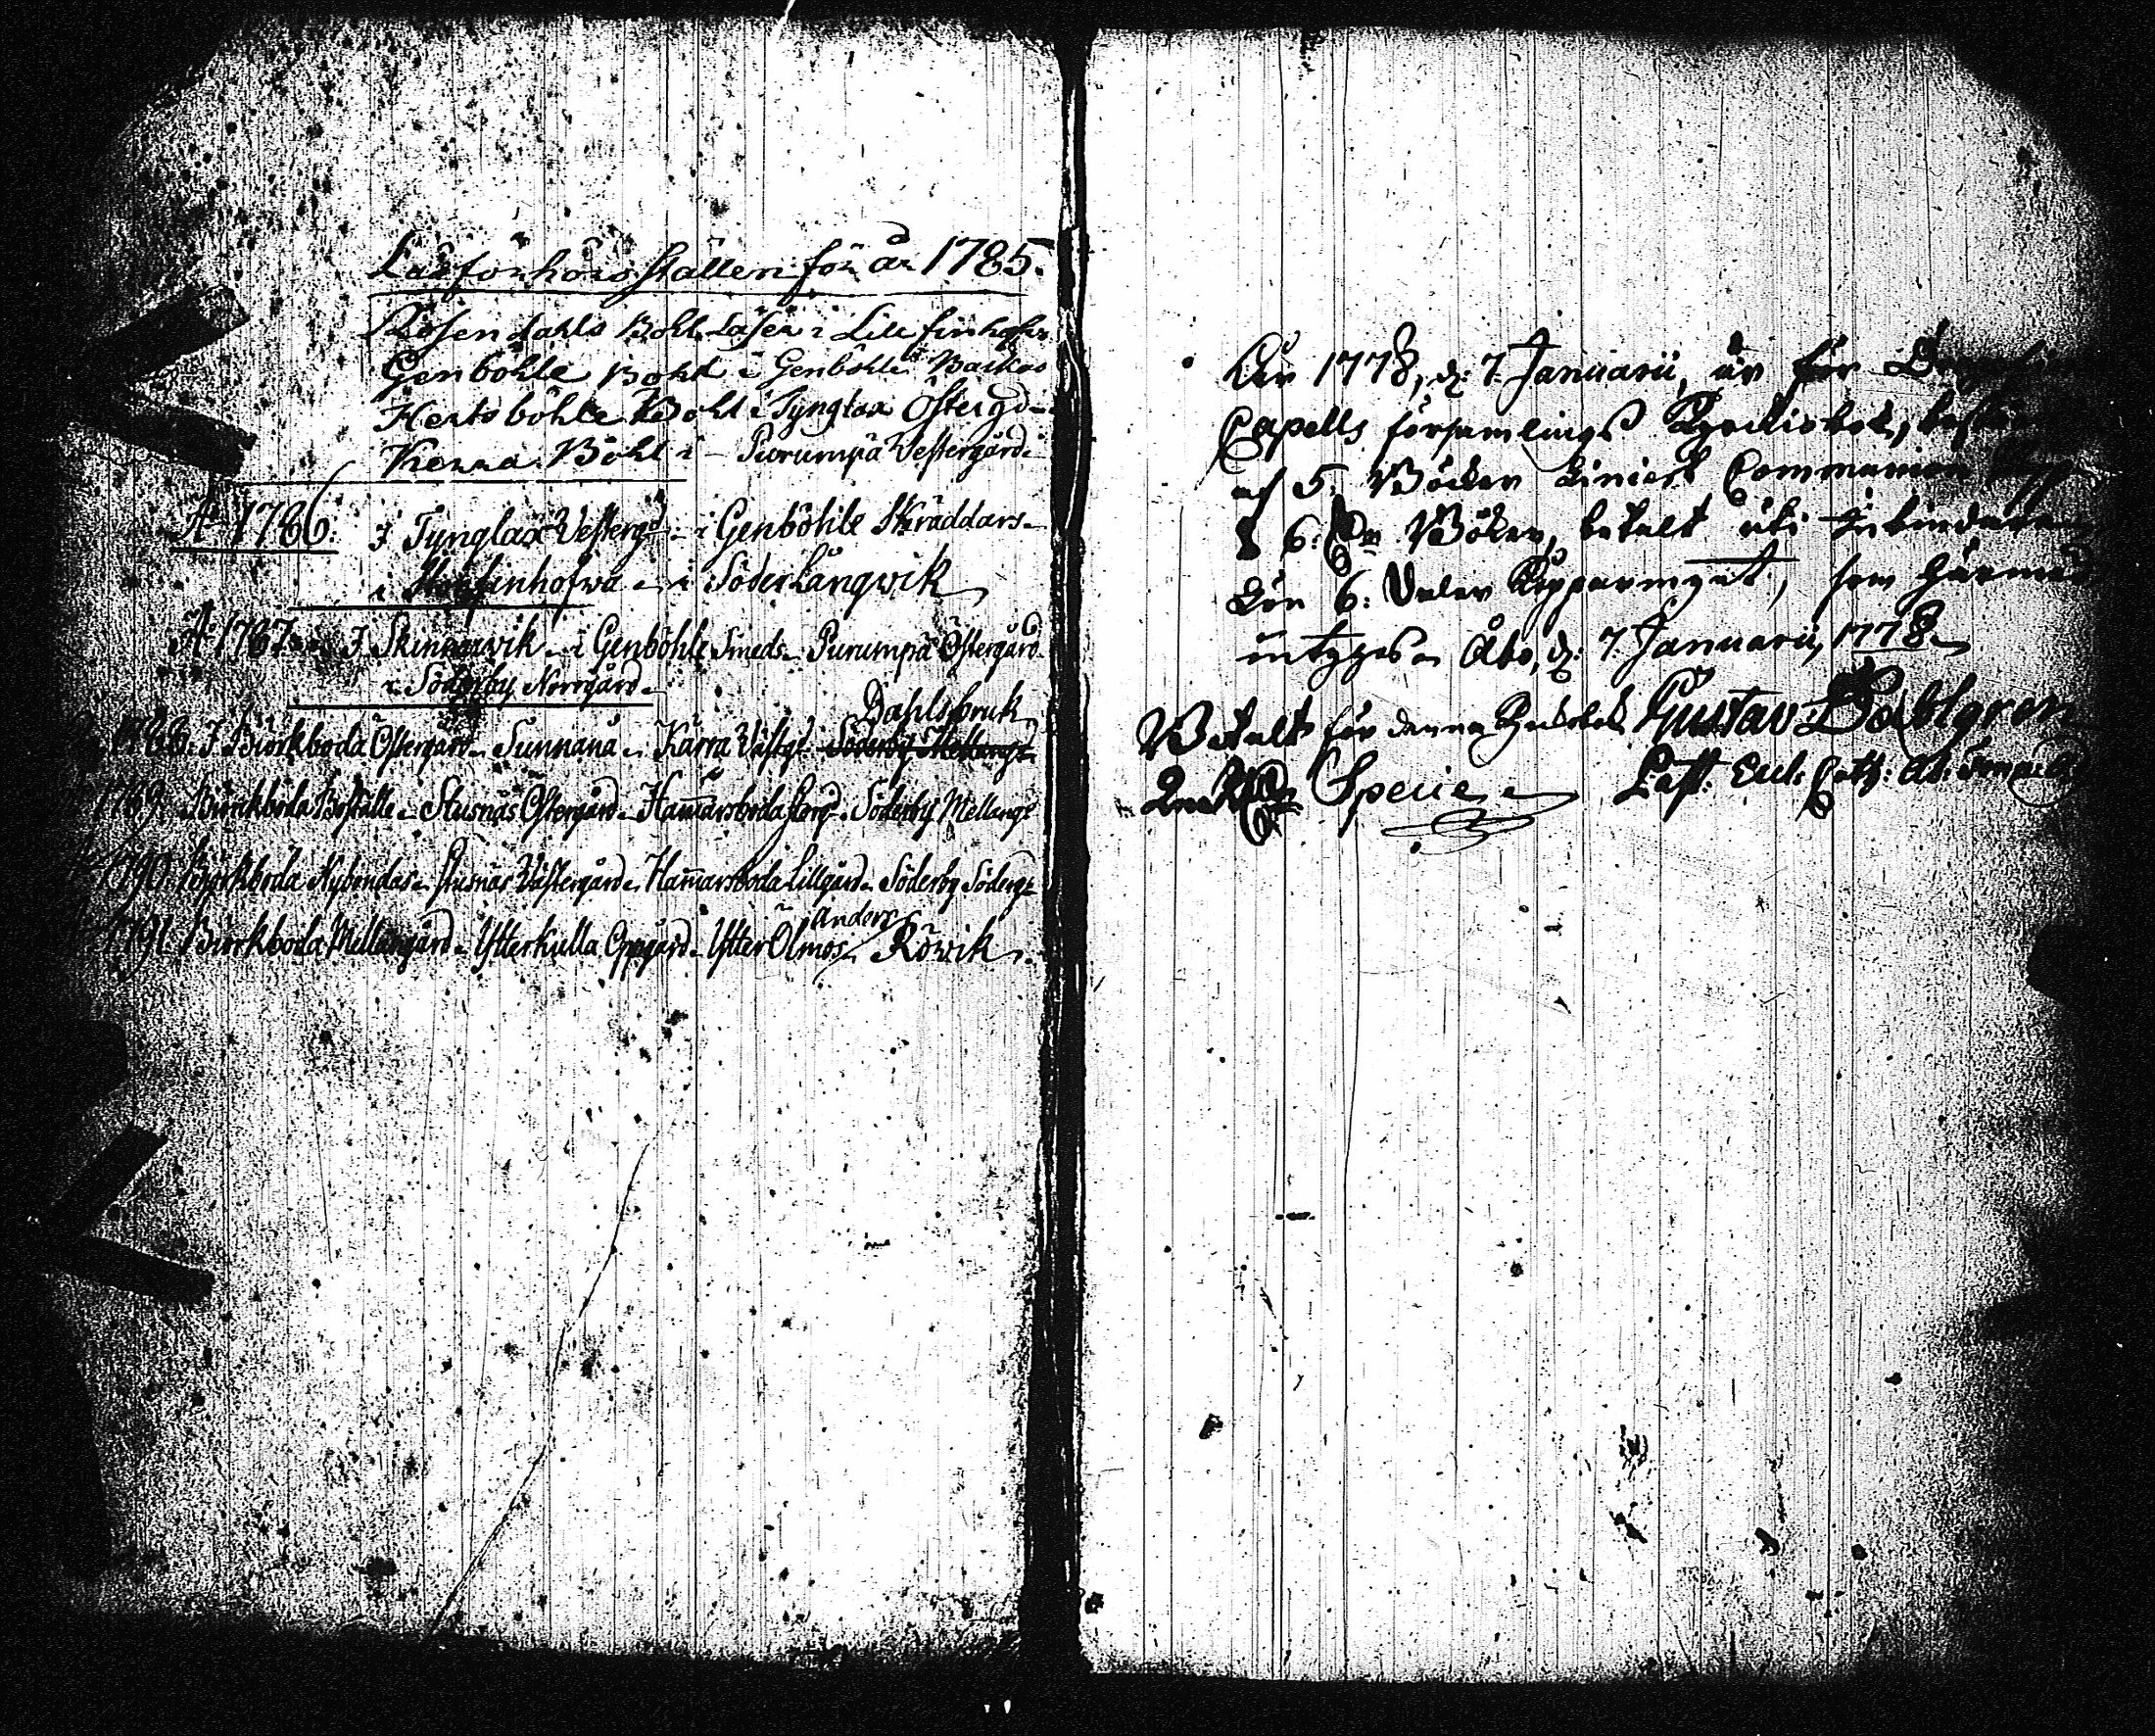 Läseförhörs ställen för år 1785.
Rosendahls Bohl läser i Lill finhofva
Genböhle Bohl i Genböhle Backas
Hertsböhle Bohl i Tynglax Östergd
Kerra Böhl i Purumpä Vestergård
A:o 1786. J Tynglax Vesterg:d i Genböhle Skräddars
i finhofwa i Söderlångwik
A:o 1787. J Skinnarwik i Genböhle Smeds Purumpä Östergård
i Söderby Norrgård
Dahlsbruk
1788. J Biörkboda Östergård Sunnanå Kärra Västgd Söderby Mellangd
1789. Biörckboda Boställe Stusnäs Östergård Hammarsboda storg Söderby Mellangd
1790. Biörkboda Nybondas Stusnäs Västergård Hammarsboda Lillgård Söderby Söderg
Anders
1791 Biörkboda Mellangård Ytterkulla Oppgård Ytter Ölmos Röwik
Åhr 1778, d: 7. Januarii, är för
Capells församlings Kyrckiobok,
af 5. Böcker Liniert Communion
& 6: Böker, betalt uti inbindare
Lön 6. Daler Kopparmynt, som härmed
intygas Åbo, d: 7. Januarii, 1778.
Betalt för denna Kyrkobok Gustav Dahlgren
Specie